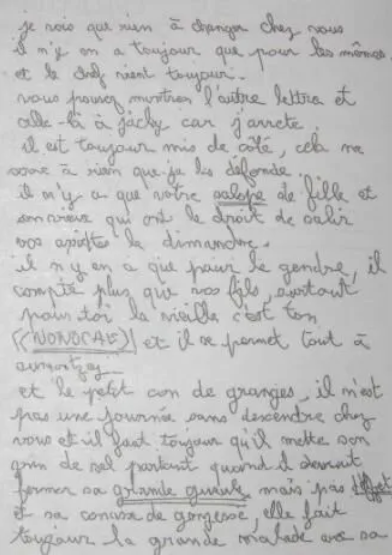 je vois que rien à changer chez vous
il n'y en a toujour que pour les mêmes,
et le chef vient toujour.
vous pouvez montrer l'autre lettre et
celle-là à jacky car j'arrete.
il est toujour mis de côté, cela ne
sere à rien que je les défende.
il n'y a que votre salope de fille et
son vieux qui ont le droit de salir
vos assiettes le dimanche.
il n y en à que pour le gendre, il
compte plus que vos fils, surtout
pour toi la vieille c'est ton
((NONOCAE)) et il se permet tout à
aumontzey
et le petit con de granges, il n'est
pas une journée sans descendre chez
vous et il faut toujour qu'il mette son
grin de sel partout quand il devrait
fermer sa grande gueule mais pas
et sa connase de gorgesse, elle fait
toujour la grande malade avec sa